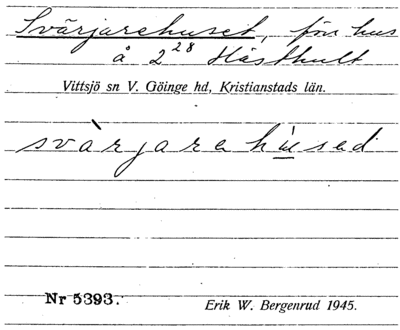 Svärjarehuset, förr hus
å 2²⁸ Hästhult
Vittsjö sn V. Göinge hd, Kristianstads län.
svàrjarehùsed
Nr 5393.
Erik W. Bergenrud 1945.